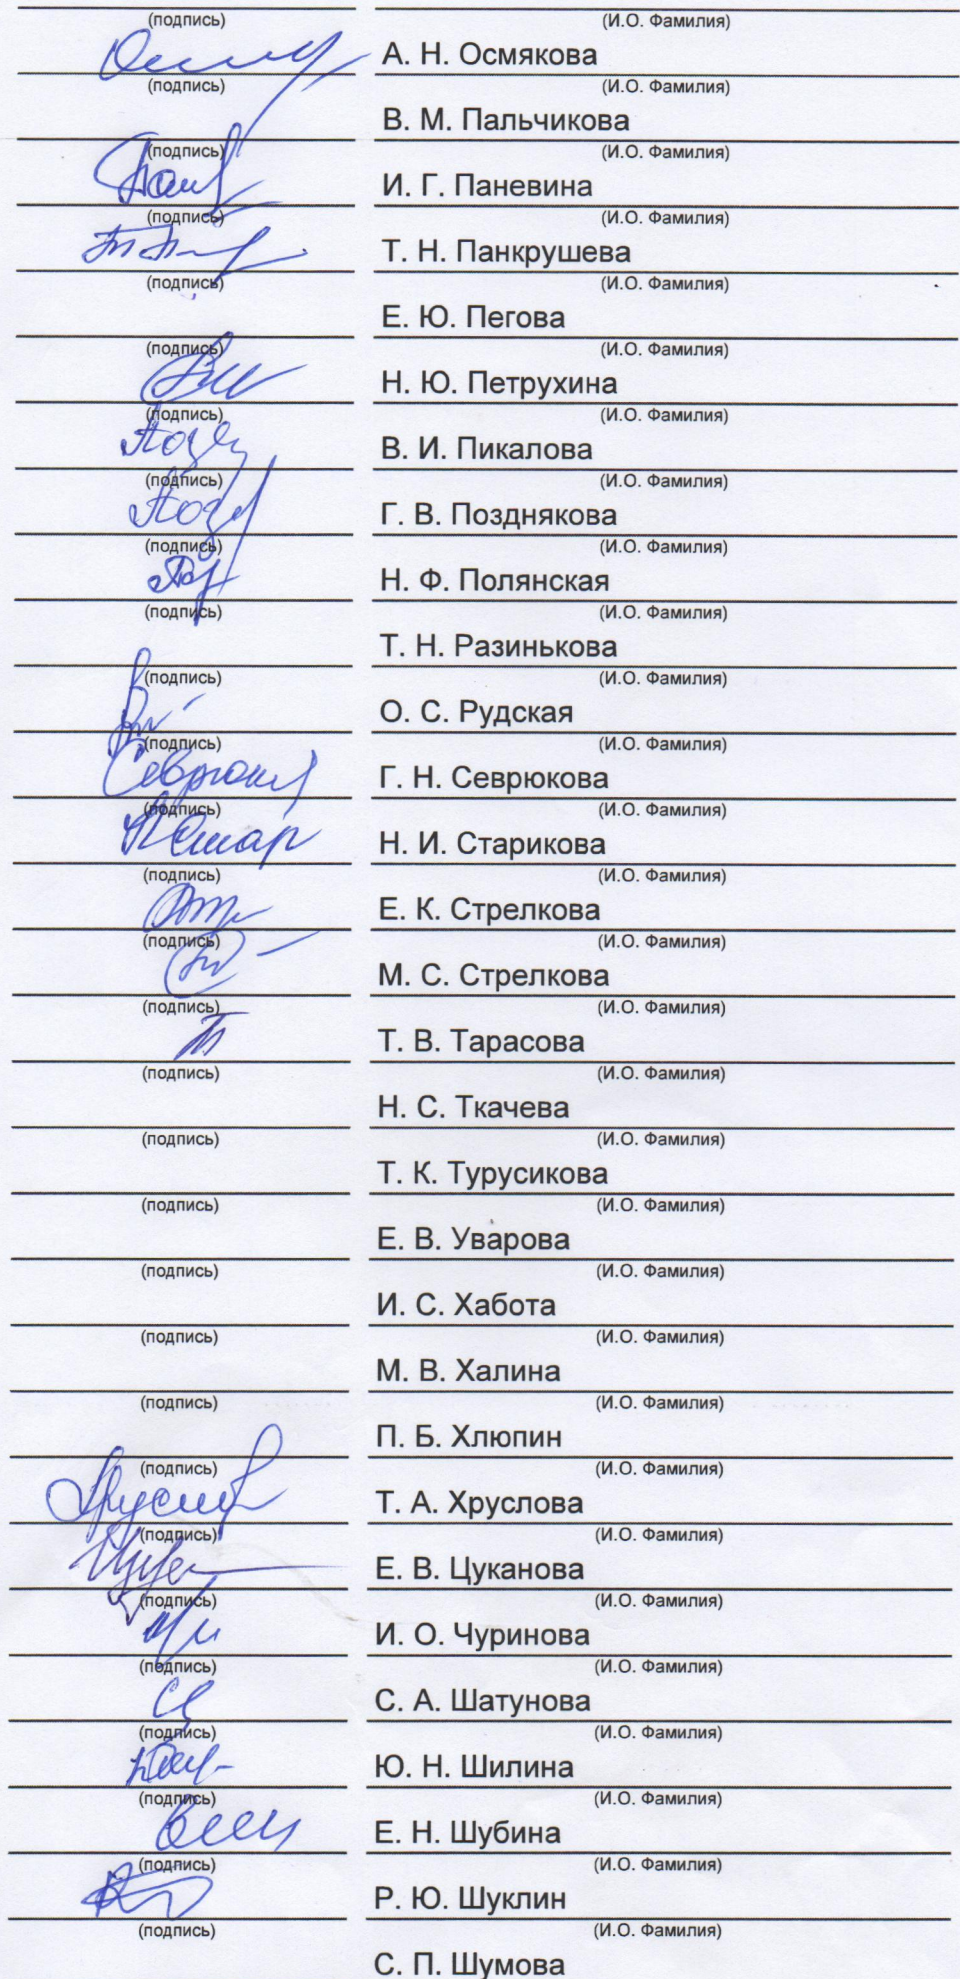 (подпись) (И.О. Фамилия)
А. Н. Осмякова
(подпись) (И.О. Фамилия)
В. М. Пальчикова
(подпись) (И.О. Фамилия)
И. Г. Паневина
(подпись) (И.О. Фамилия)
Т. Н. Панкрушева
(подпись) (И.О. Фамилия)
Е. Ю. Пегова
(подпись) (И.О. Фамилия)
Н. Ю. Петрухина
(подпись) (И.О. Фамилия)
В. И. Пикалова
(подпись) (И.О. Фамилия)
Г. В. Позднякова
(подпись) (И.О. Фамилия)
Н. Ф. Полянская
(подпись) (И.О. Фамилия)
Т. Н. Разинькова
(подпись) (И.О. Фамилия)
О. С. Рудская
(подпись) (И.О. Фамилия)
Г. Н. Севрюкова
(подпись) (И.О. Фамилия)
Н. И. Старикова
(подпись) (И.О. Фамилия)
Е. К. Стрелкова
(подпись) (И.О. Фамилия)
М. С. Стрелкова
(подпись) (И.О. Фамилия)
Т. В. Тарасова
(подпись) (И.О. Фамилия)
Н. С. Ткачева
(подпись) (И.О. Фамилия)
Т. К. Турусикова
(подпись) (И.О. Фамилия)
Е. В. Уварова
(подпись) (И.О. Фамилия)
И. С. Хабота
(подпись) (И.О. Фамилия)
М. В. Халина
(подпись) (И.О. Фамилия)
П. Б. Хлюпин
(подпись) (И.О. Фамилия)
Т. А. Хруслова
(подпись) (И.О. Фамилия)
Е. В. Цуканова
(подпись) (И.О. Фамилия)
И. О. Чуринова
(подпись) (И.О. Фамилия)
С. А. Шатунова
(подпись) (И.О. Фамилия)
Ю. Н. Шилина
(подпись) (И.О. Фамилия)
Е. Н. Шубина
(подпись) (И.О. Фамилия)
Р. Ю. Шуклин
(подпись) (И.О. Фамилия)
С. П. Шумова